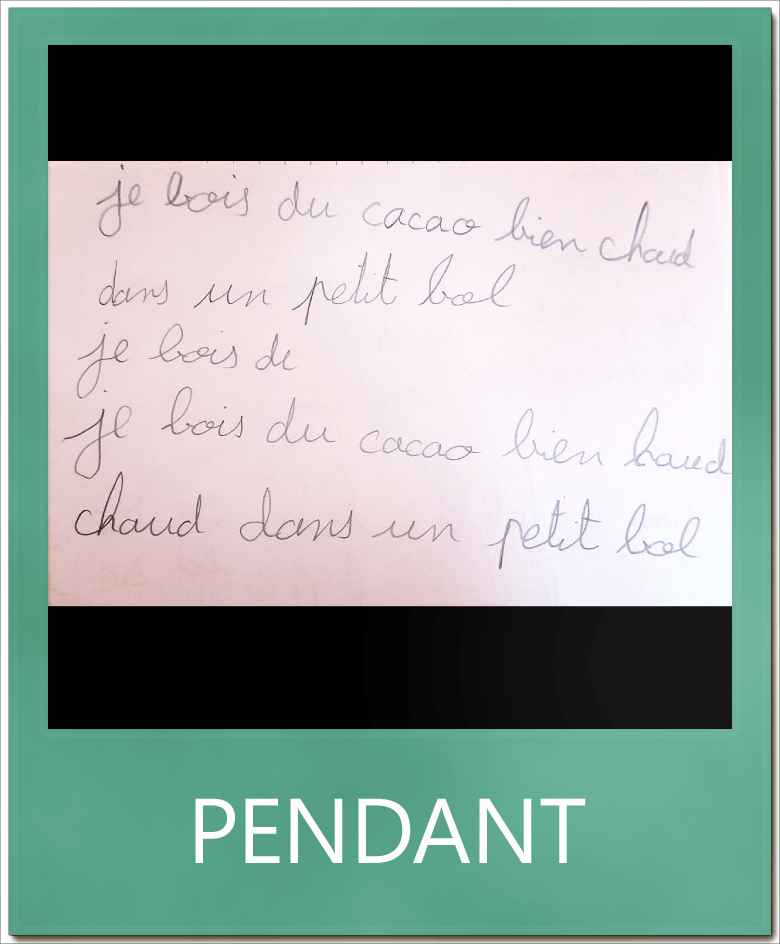 je bois du cacao bien chaud
dans un petit bol
je bois de
je bois du cacao bien haud
chaud dans un petit bol
PENDANT